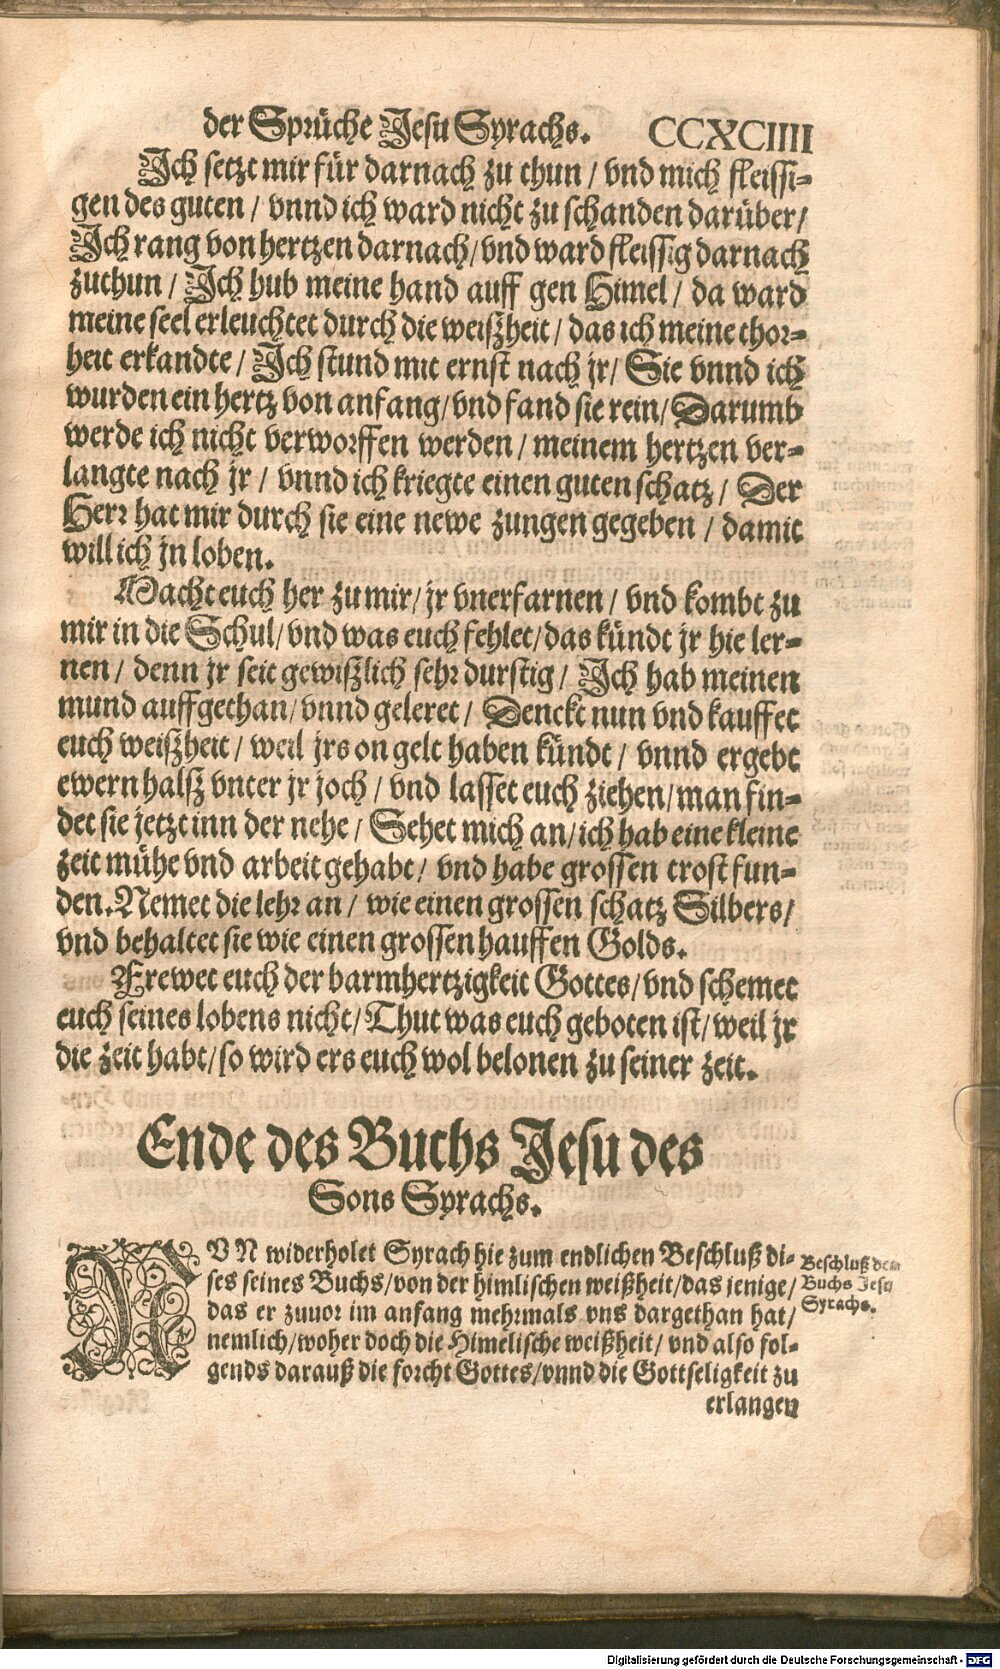 der Sprüche Jesu Syrachs. CCXCIIII
Ich setzt mir für darnach zu thun / vnd mich fleissi-
gen des guten / vnnd ich ward nicht zu schanden darüber /
Ich rang von hertzen darnach / vnd ward fleissig darnach
zuthun / Ich hub meine hand auff gen Himel / da ward
meine seel erleuchtet durch die weißheit / das ich meine thor-
heit erkandte / Ich stund mit ernst nach jr / Sie vnnd ich
wurden ein hertz von anfang / vnd fand sie rein / Darumb
werde ich nicht verworffen werden / meinem hertzen ver-
langte nach jr / vnnd ich kriegte einen guten schatz / Der
Herr hat mir durch sie eine newe zungen gegeben / damit
will ich jn loben.
Macht euch her zu mir / jr vnerfarnen / vnd kombt zu
mir in die Schul / vnd was euch fehlet / das kündt jr hie ler-
nen / denn jr seit gewißlich sehr durstig / Ich hab meinen
mund auffgethan / vnnd geleret / Denckt nun vnd kauffet
euch weißheit / weil jrs on gelt haben kündt / vnnd ergebt
ewern halß vnter jr joch / vnd lasset euch ziehen / man fin-
det sie jetzt inn der nehe / Sehet mich an / ich hab eine kleine
zeit mühe vnd arbeit gehabt / vnd habe grossen trost fun-
den. Nemet die lehr an / wie einen grossen schatz Silbers /
vnd behaltet sie wie einen grossen hauffen Golds.
Frewet euch der barmhertzigkeit Gottes / vnd schemet
euch seines lobens nicht / Thut was euch geboten ist / weil jr
die zeit habt / so wird ers euch wol belonen zu seiner zeit.
Ende des Buchs Jesu des
Sons Syrachs.
NVN widerholet Syrach hie zum endlichen Beschluß di-
ses seines Buchs / von der himlischen weißheit / das jenige /
das er zuuor im anfang mehrmals vns dargethan hat /
nemlich / woher doch die Himelische weißheit / vnd also fol-
gends darauß die forcht Gottes / vnnd die Gottseligkeit zu
erlangen
Beschluß des
Buchs Jesu
Syrachs.
Digitalisierung gefördert durch die Deutsche Forschungsgemeinschaft - DFG